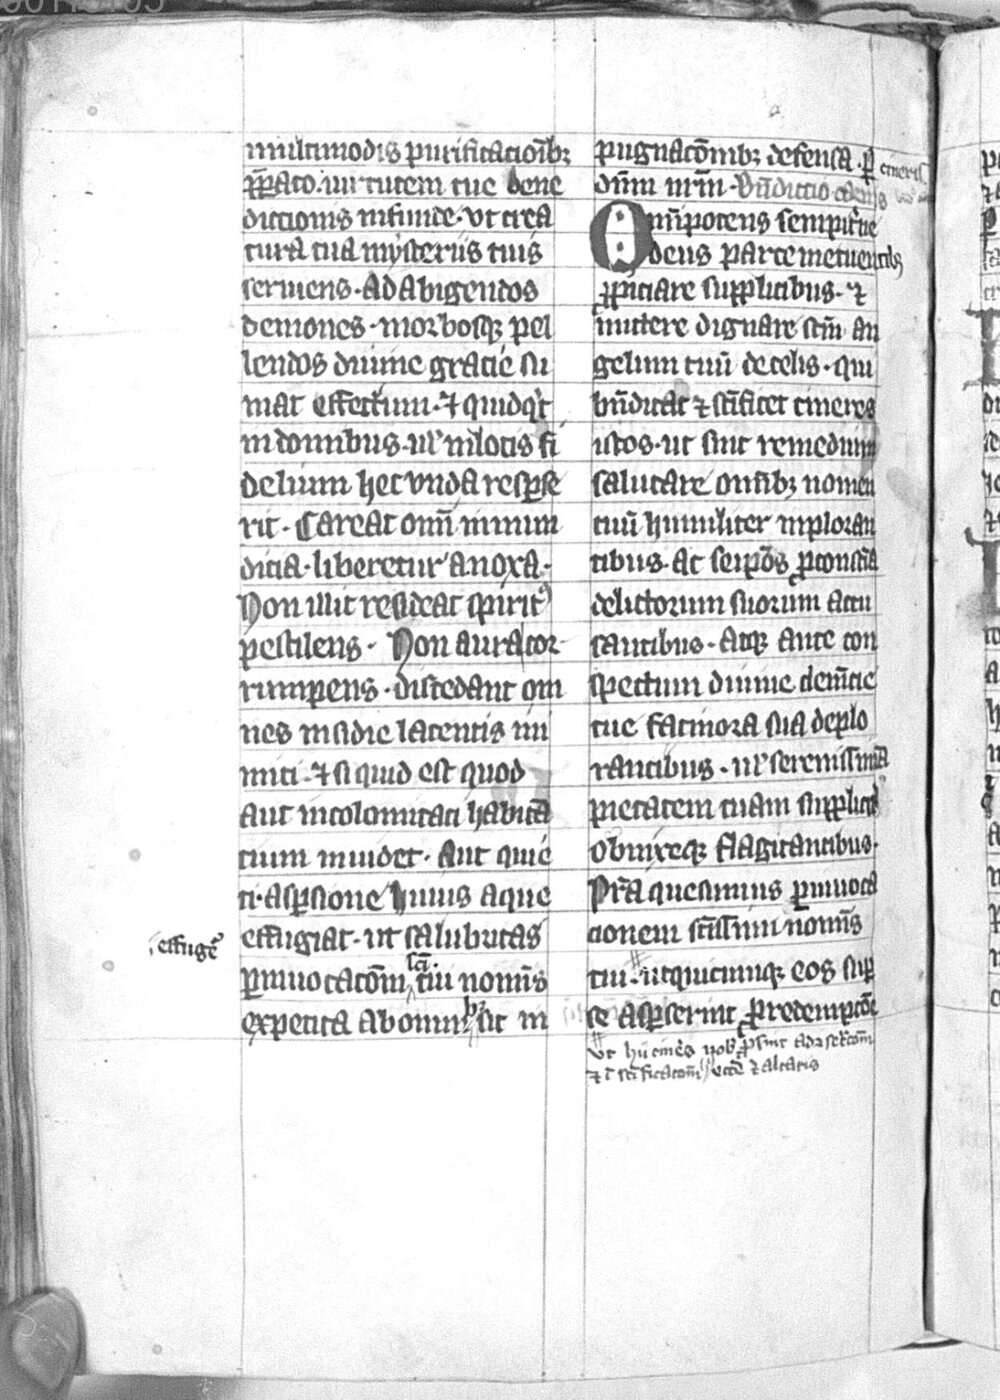 multimodis purificacioībꝫ
p̄parato. uirtutem tue bene
dictionis infunde. ut crea
tura tua mysteriis tuis
seruiens. Ad abigendos
demones. morbosqꝫ pel
lendos diuine gracie su
mat effectum. ⁊ quidqͥd
in domibus. uł in locis fi
delium hec vnda resꝑse
rit. Careat om̄i inmun
dicia. liberetur a noxa.
Non illic resideat spiritꝰ
pestilens. Non aura cor
rumpens. discedant om
nes insidie latentis ini
mici. ⁊ si quid est quod
aut incolomitati habitā
cium inuidet. Aut quie
ti. asꝑsione huius aque
effugiat. ut salubritas
effugēt
ꝑ inuocacōm sc̄i. tui nomīs
expetita ab omnibꝫ sit in
pugnacōnibꝫ defensa. ꝑ
dn̄m nr̄m. Bn̄dictio cineris
Om̄ipotens sempit̄ne
deus parce metuentibꝫ
ꝓpiciare supplicibus. ⁊
mittere dignare sc̄m an
gelum tuū de celis. qui
bn̄dicat ⁊ sc̄ificet cineres
istos. ut sint remedium
salutare om̄ibꝫ nomen
tuū humiliter inploran
tibus. ac seip̄os ꝓ consciā
delictorum suorum accu
santibus. Atqꝫ ante con
spectum diuine clem̄cie
tue facinora sua deplo
rantibus. uł serenissimā
pietatem tuam suppliciť
obnixeqꝫ flagitantibus.
Pr̄a quesumus ꝑ inuoca
cionem sc̄issimi nomīs
tui. ut quicumqꝫ eos suꝑ
se asꝑserint ꝓ redempcōe